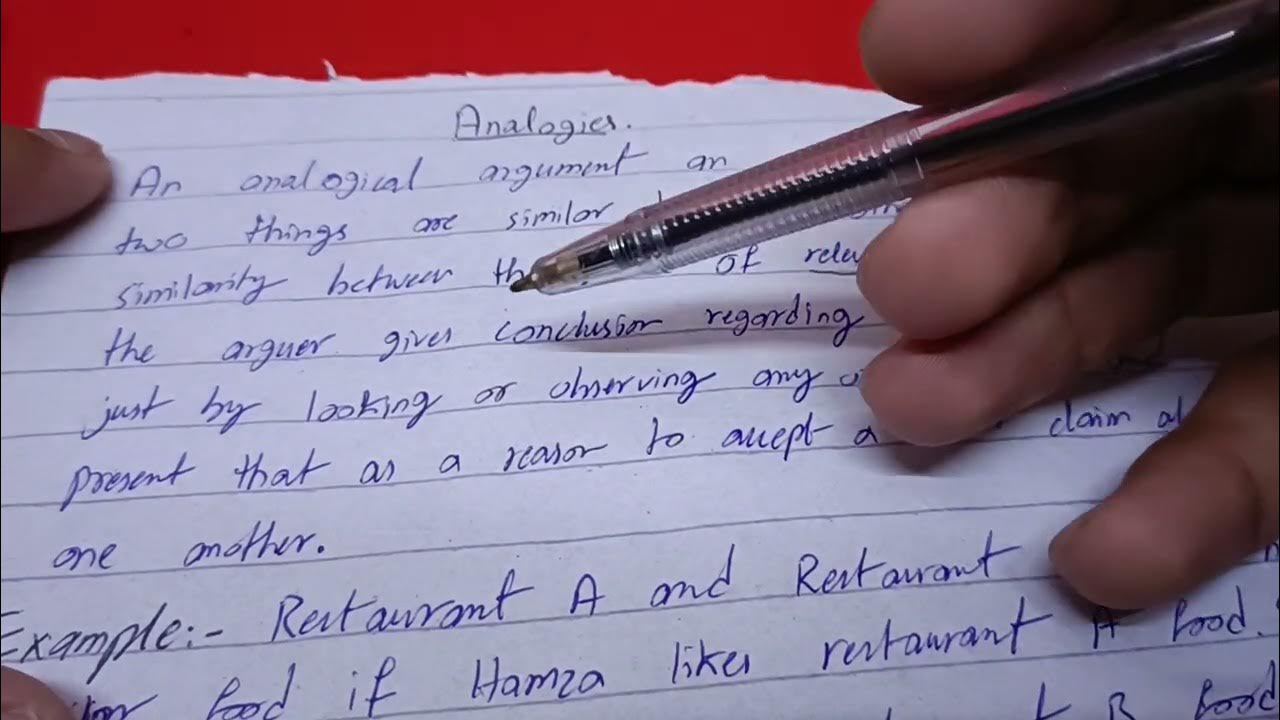 Analogies.
An analogical argument an
two things are similar
similarity between of
the arguer gives conclusion regarding
just by looking or observing any
present that as a reason to accept a claim
one another.
Example:- Restaurant A and Restaurant
food if Hamza likes restaurant A food.
B food